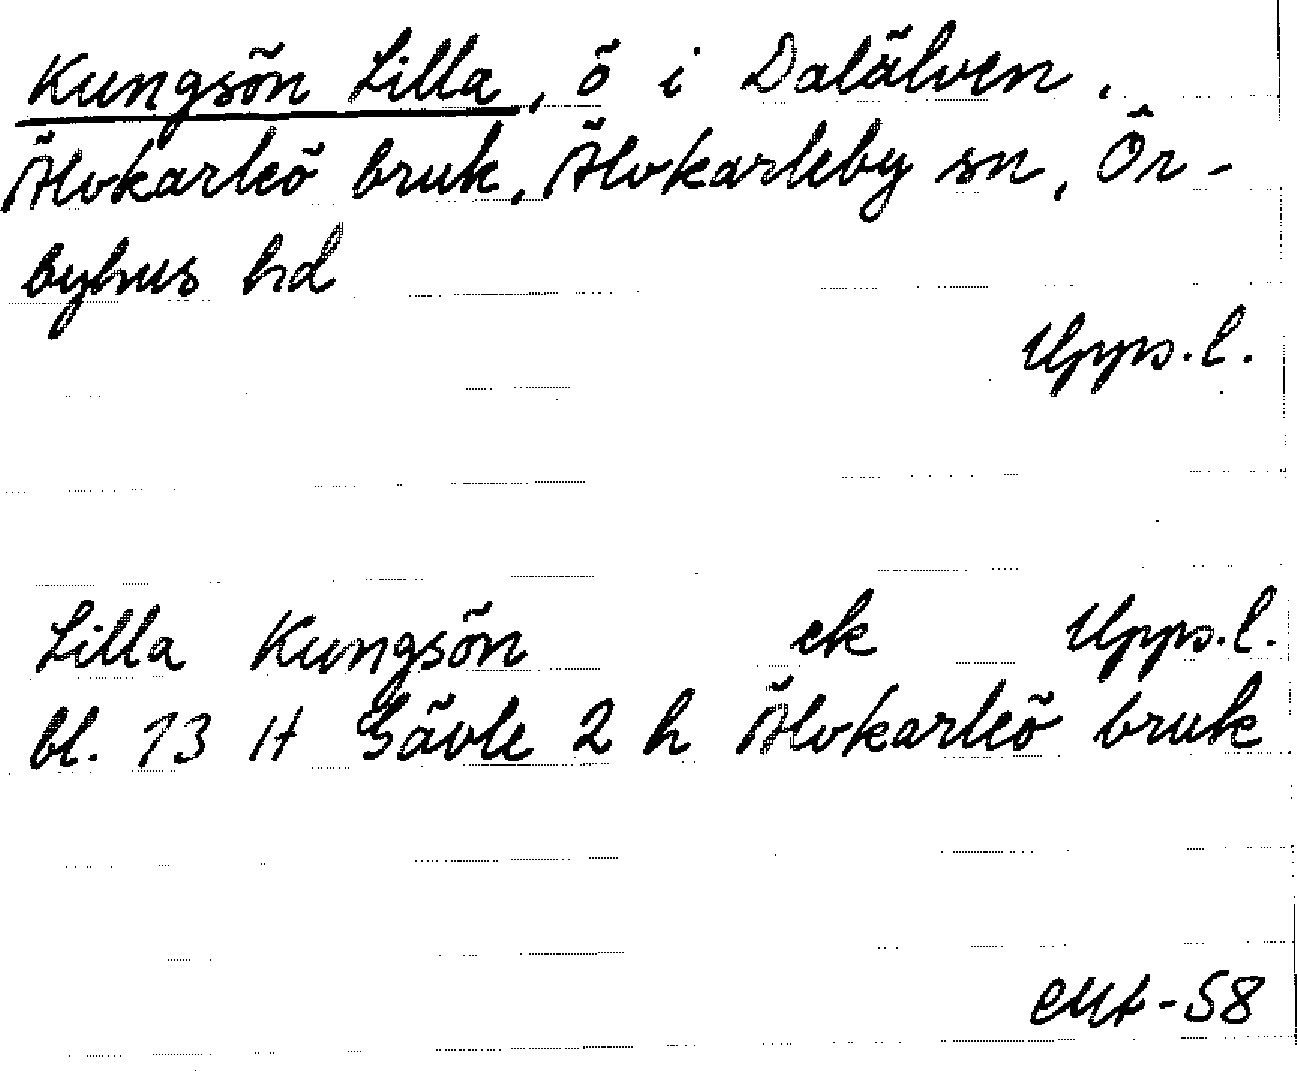 Kungsön Lilla, ö i Dalälven,
Älvkarleö bruk, Älvkarleby sn, Ör-
byhus hd
Upps.l.
Lilla Kungsön ek Upps.l.
bl. 13 H Gävle 2 h Älvkarleö bruk
-58